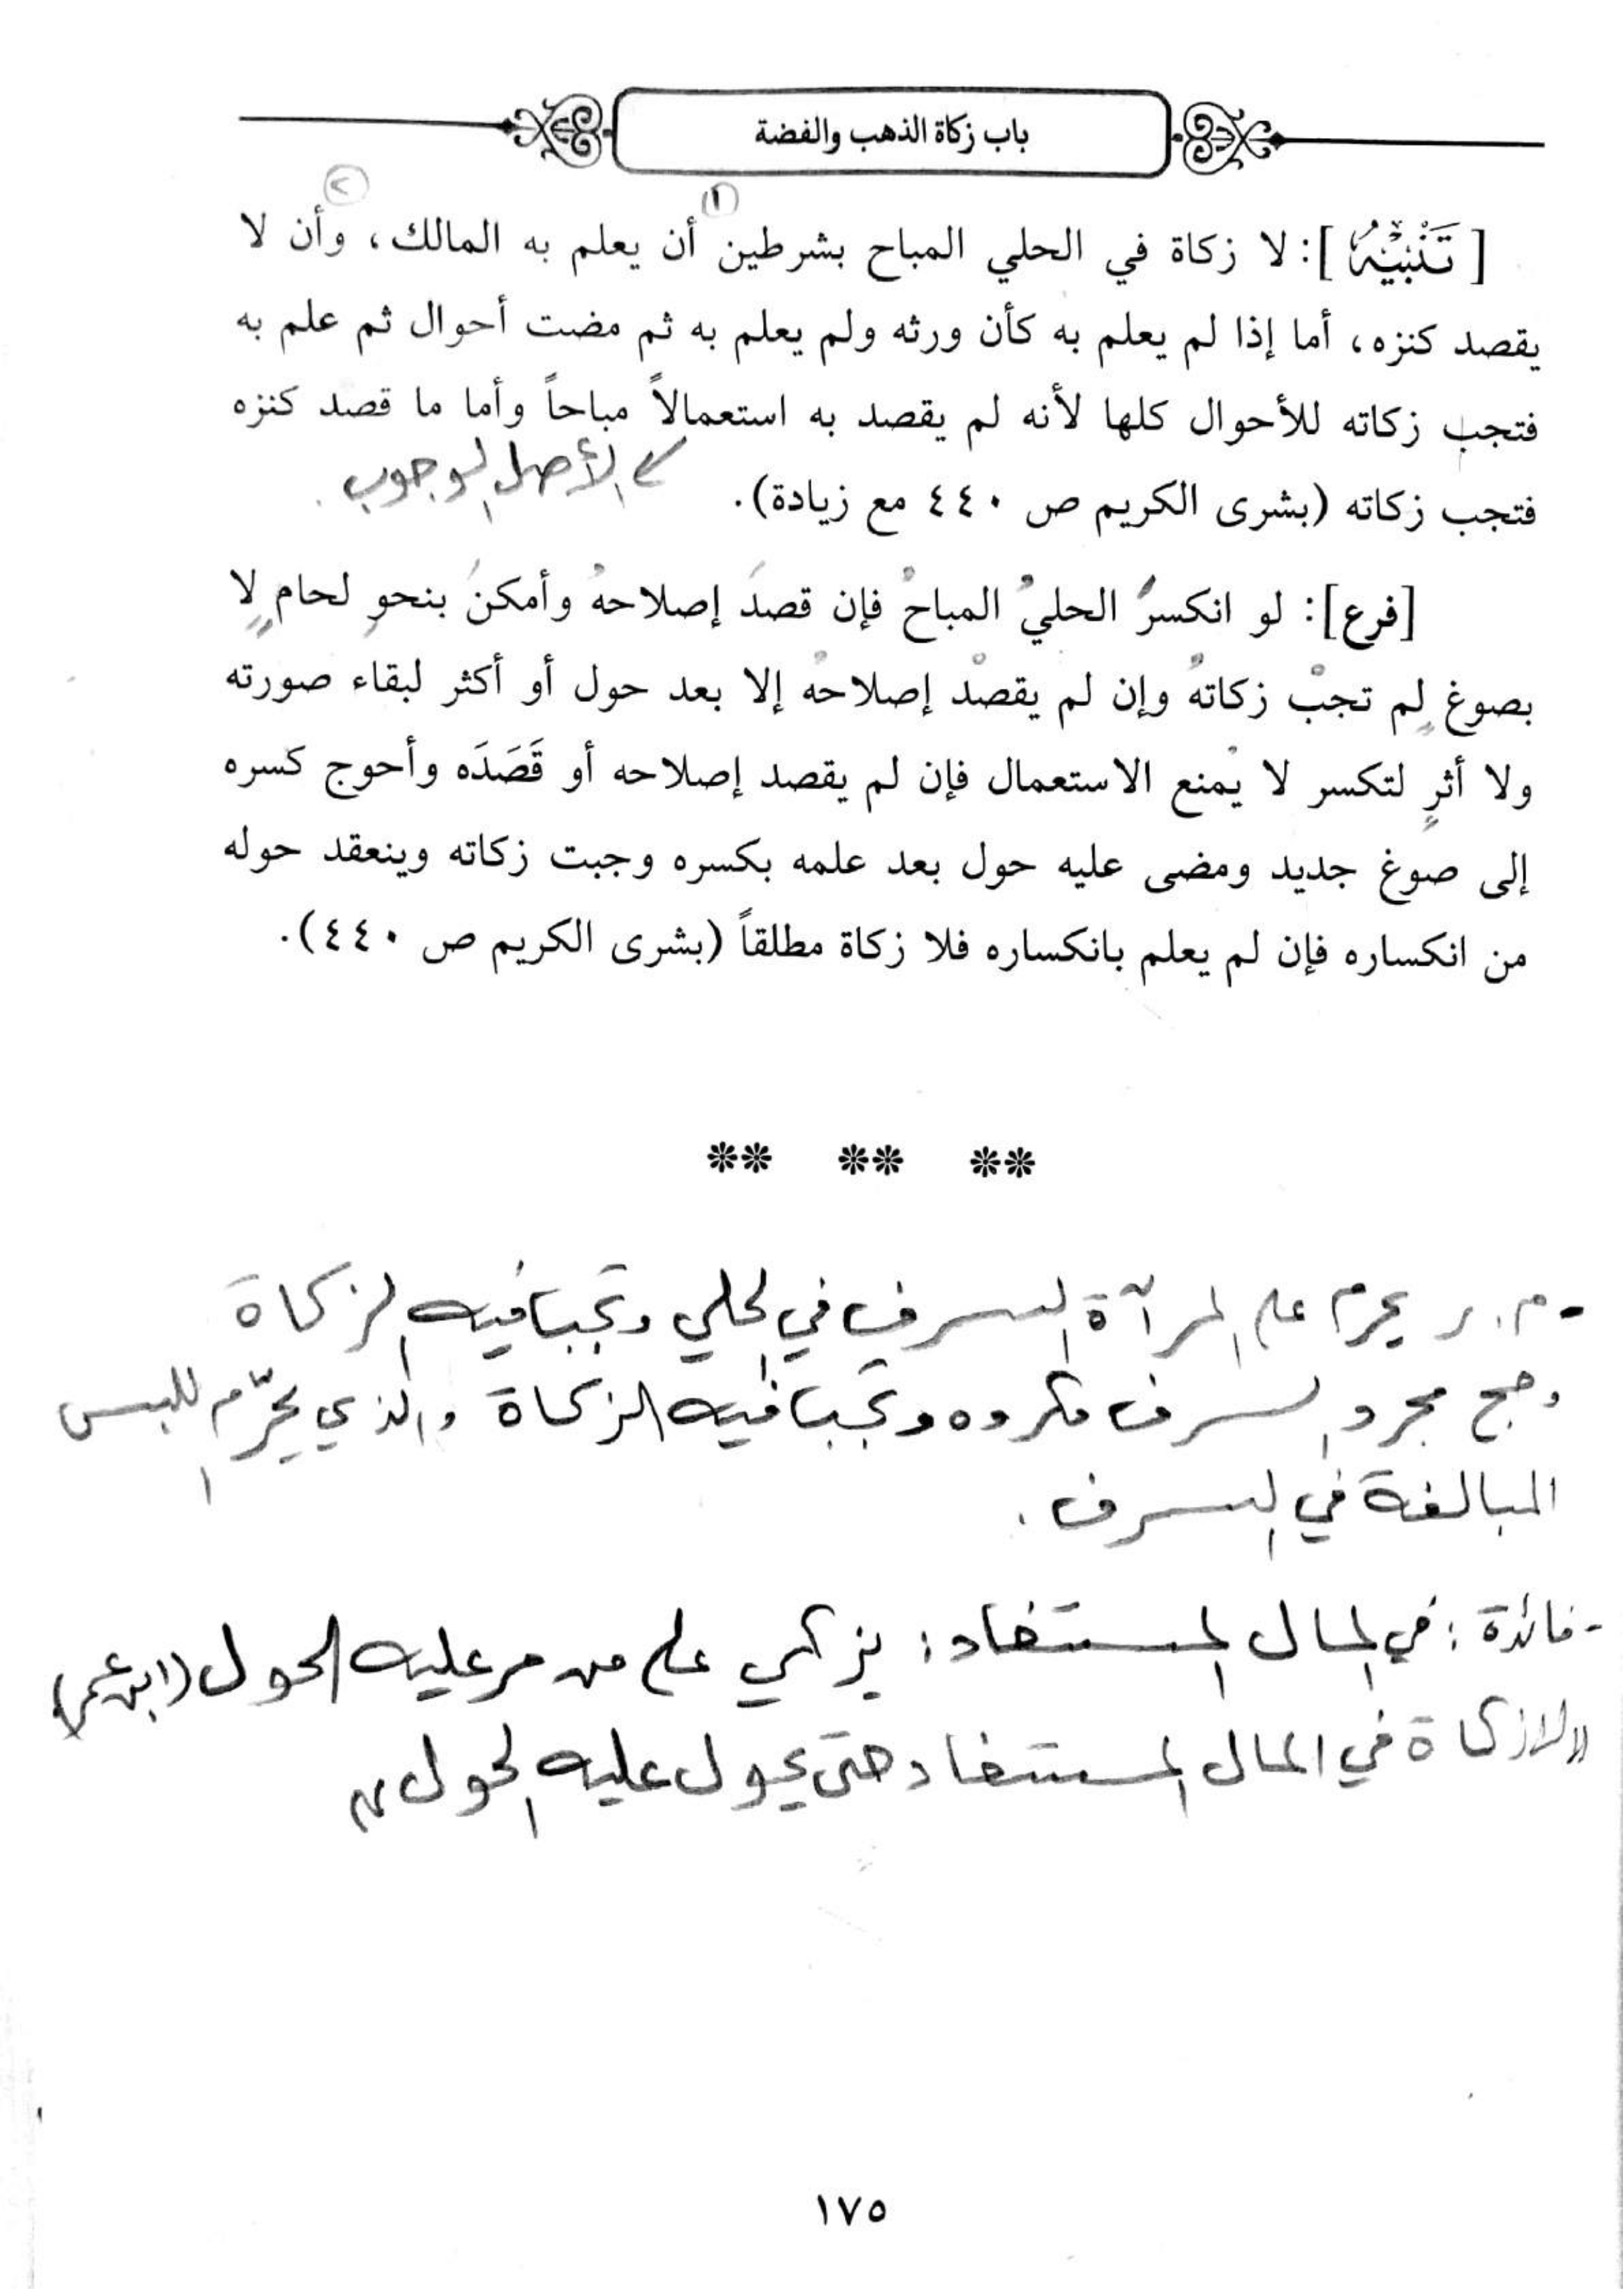 باب زكاة الذهب والفضة
(١) (٢)
[تَنْبِيْهٌ]: لا زكاة في الحلي المباح بشرطين أن يعلم به المالك، وأن لا
يقصد كنزه، أما إذا لم يعلم به كأن ورثه ولم يعلم به ثم مضت أحوال ثم علم به
فتجب زكاته للأحوال كلها لأنه لم يقصد به استعمالاً مباحاً وأما ما قصد كنزه
فتجب زكاته (بشرى الكريم ص ٤٤٠ مع زيادة).
الأصل الوجوب.
[فرع]: لو انكسرَ الحليُ المباحُ فإن قصدَ إصلاحهُ وأمكنَ بنحوِ لحامٍ لا
بصوغٍ لم تجبْ زكاتهُ وإن لم يقصدْ إصلاحهُ إلا بعد حول أو أكثر لبقاء صورته
ولا أثرٍ لتكسر لا يمنع الاستعمال فإن لم يقصد إصلاحه أو قَصَدَه وأحوج كسره
إلى صوغ جديد ومضى عليه حول بعد علمه بكسره وجبت زكاته وينعقد حوله
من انكساره فإن لم يعلم بانكساره فلا زكاة مطلقاً (بشرى الكريم ص ٤٤٠).
** ** **
- م.ر يحرم على المرآة السرف في الحلي وتجب فيه الزكاة
وحج مجرد السرف مكروه وتجب فيه الزكاة والذي يحرّم اللبس
المبالغة في السرف.
- فائدة: في المال المستفاد: يزكي على من مر عليه الحول (ابن عمر)
"لا زكاة في المال المستفاد حتى يحول عليه الحول"
١٧٥